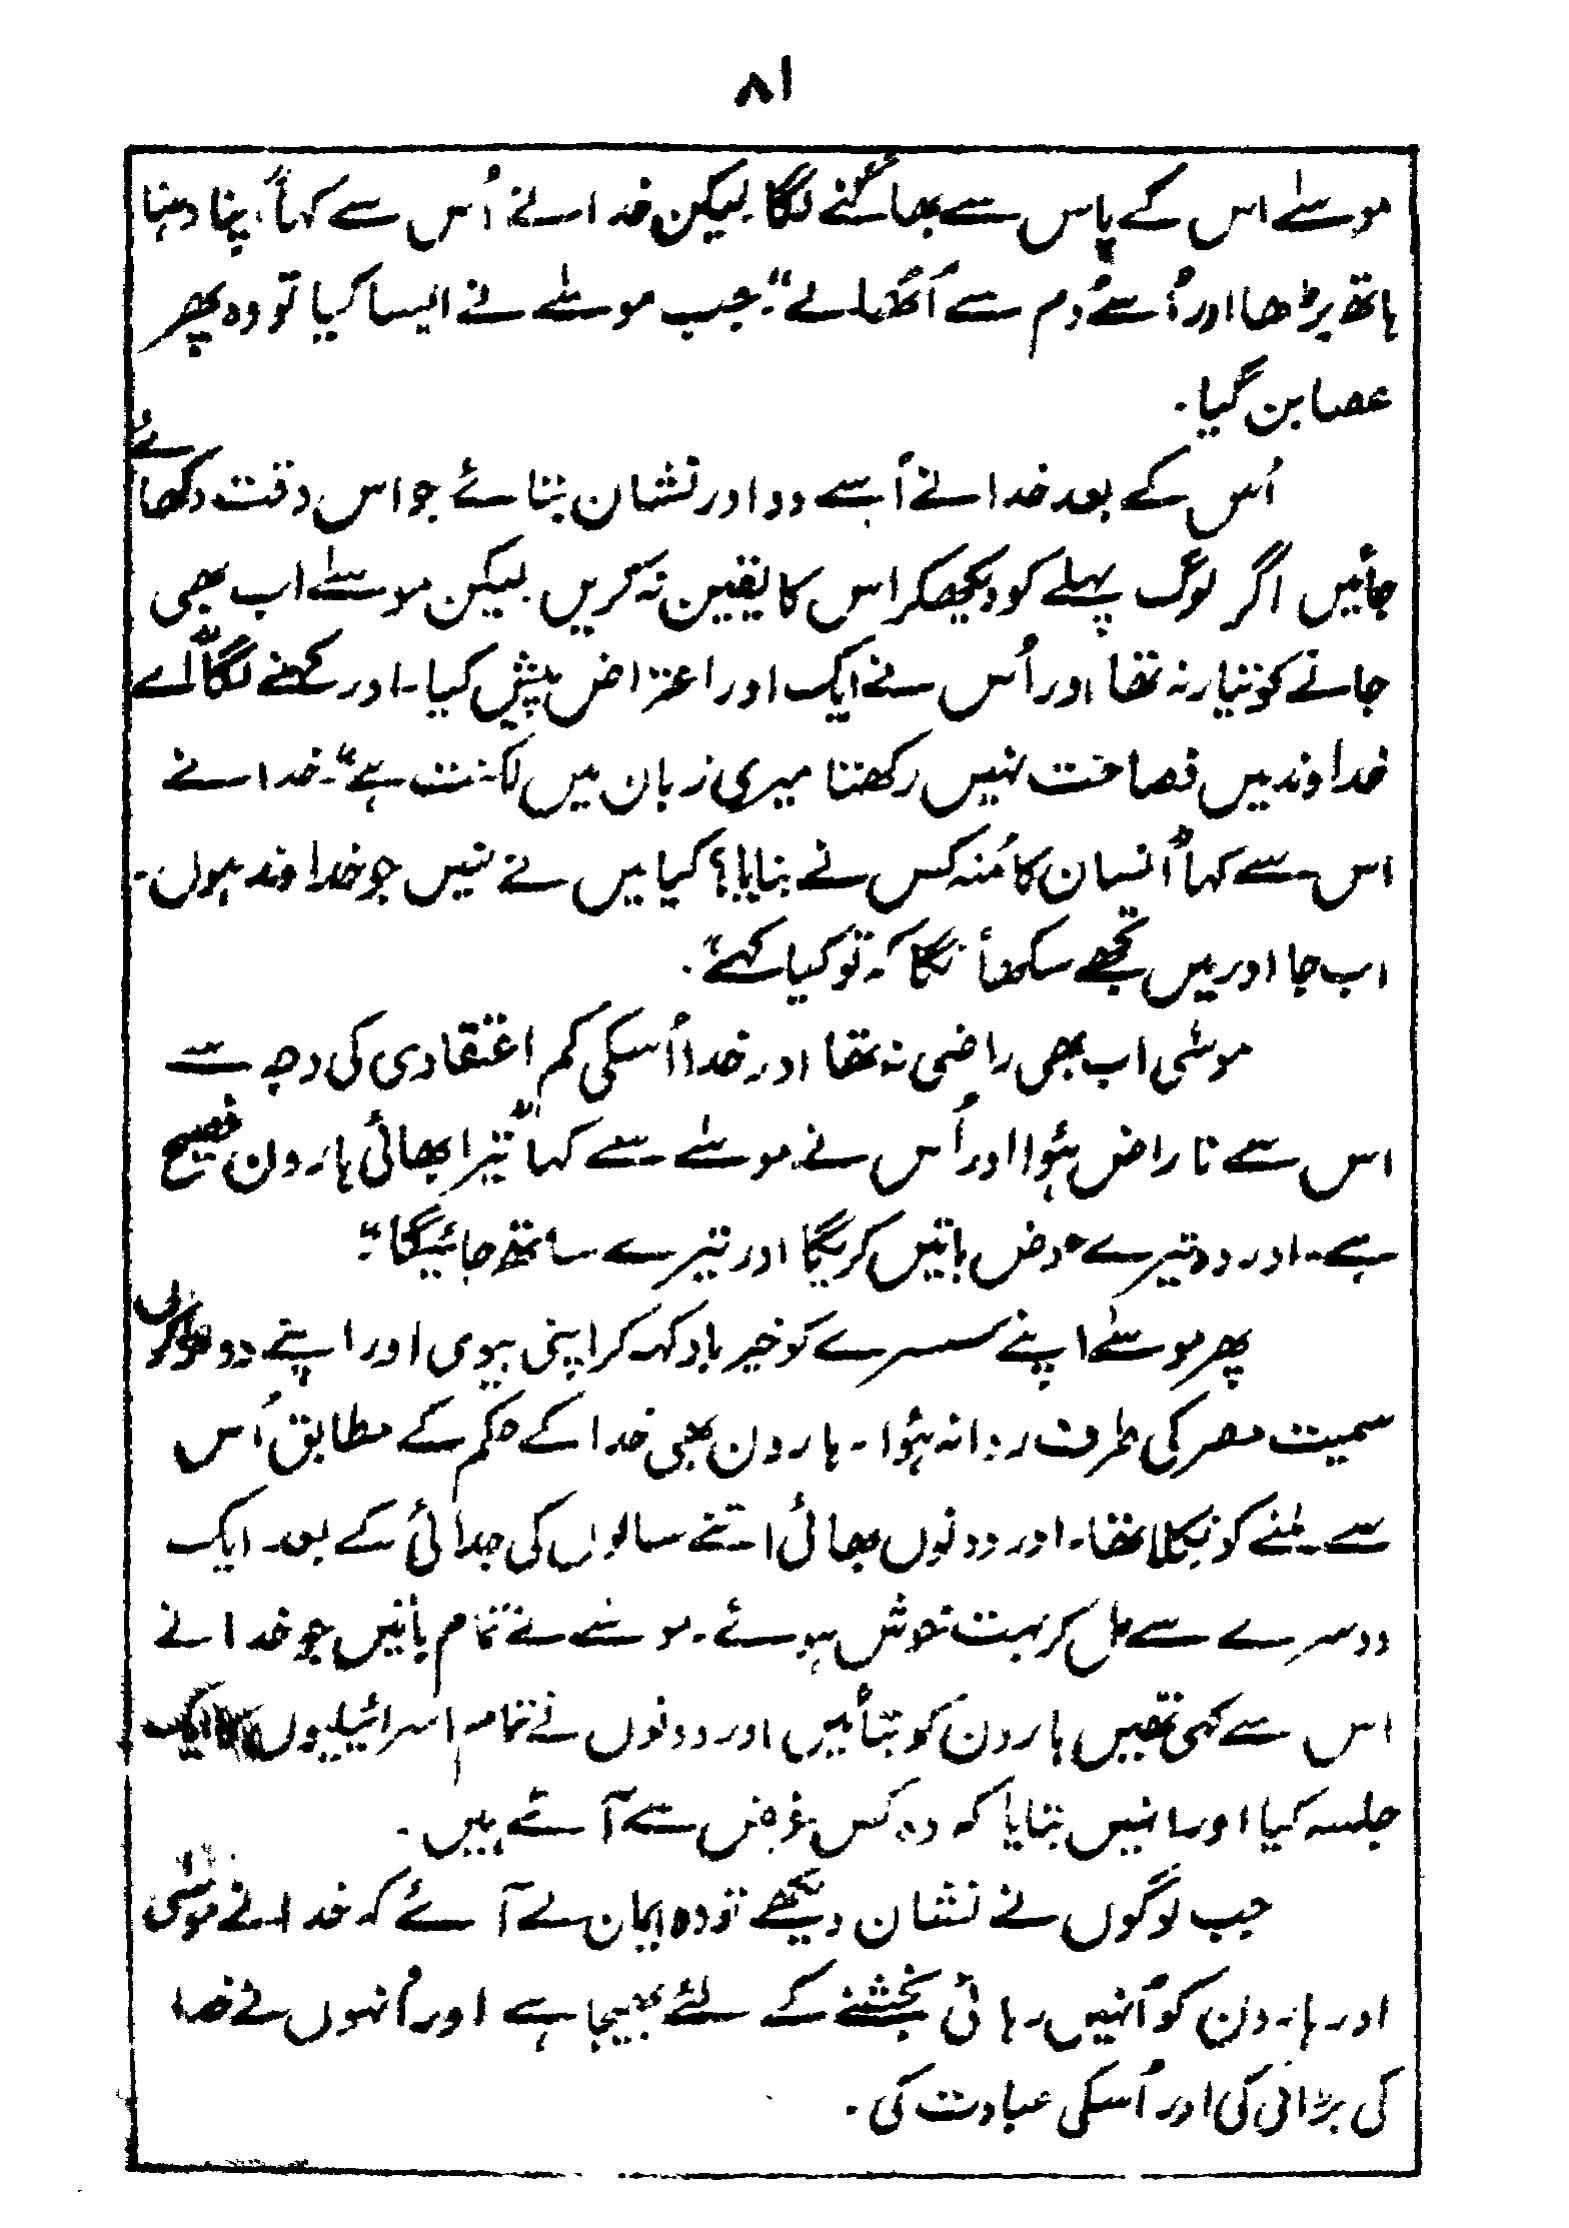 ۸۱
موسےٰ اس کے پاس سے بھاگنے لگا لیکن خدا نے اُس سے کہا "اپنا دہنا
ہاتھ بڑھا اور اُسے دُم سے اُٹھا لے"۔ جب موسےٰ نے ایسا کیا تو وہ پھر
عصا بن گیا۔
اُس کے بعد خدا نے اُسے دو اور نشان بتائے جو اس وقت دکھائے
جائیں اگر لوگ پہلے کو دیکھکر اس کا یقین نہ کریں لیکن موسےٰ اب بھی
جانے کو تیار نہ تھا اور اُس نے ایک اور اعتراض پیش کیا۔ اور کہنے لگا "اے
خداوند میں فصاحت نہیں رکھتا میری زبان میں لکنت ہے"۔ خدا نے
اس سے کہا "انسان کا مُنہ کس نے بنایا؟ کیا میں نے نہیں جو خداوند ہوں۔
اب جا اور میں تجھے سکھاؤنگا کہ تو کیا کہے"۔
موسٰی اب بھی راضی نہ تھا اور خدا اُسکی کم اعتقادی کی وجہ سے
اس سے ناراض ہؤا اور اُس نے موسےٰ سے کہا "تیرا بھائی ہارون فصیح
ہے۔ اور وہ تیرے عوض باتیں کریگا اور تیرے ساتھ جائیگا"۔
پھر موسےٰ اپنے سسرے کو خیر باد کہہ کر اپنی بیوی اور اپنے دو لڑکوں
سمیت مصر کی طرف روانہ ہؤا۔ ہارون بھی خدا کے حکم کے مطابق اُس
سے ملنے کو نکلا تھا۔ اور دونوں بھائی اتنے سالوں کی جدائی کے بعد ایک
دوسرے سے مل کر بہت خوش ہوئے۔ موسےٰ نے تمام باتیں جو خدا نے
اس سے کہی تھیں ہارون کو بتائیں اور دونوں نے تمام اسرائیلیوں کا ایک
جلسہ کیا اور انہیں بتایا کہ وہ کس غرض سے آئے ہیں۔
جب لوگوں نے نشان دیکھے تو وہ ایمان لے آئے کہ خدا نے موسٰی
اور ہارون کو اُنہیں رہائی بخشنے کے لئے بھیجا ہے اور اُنہوں نے خدا
کی بڑائی کی اور اُسکی عبادت کی۔